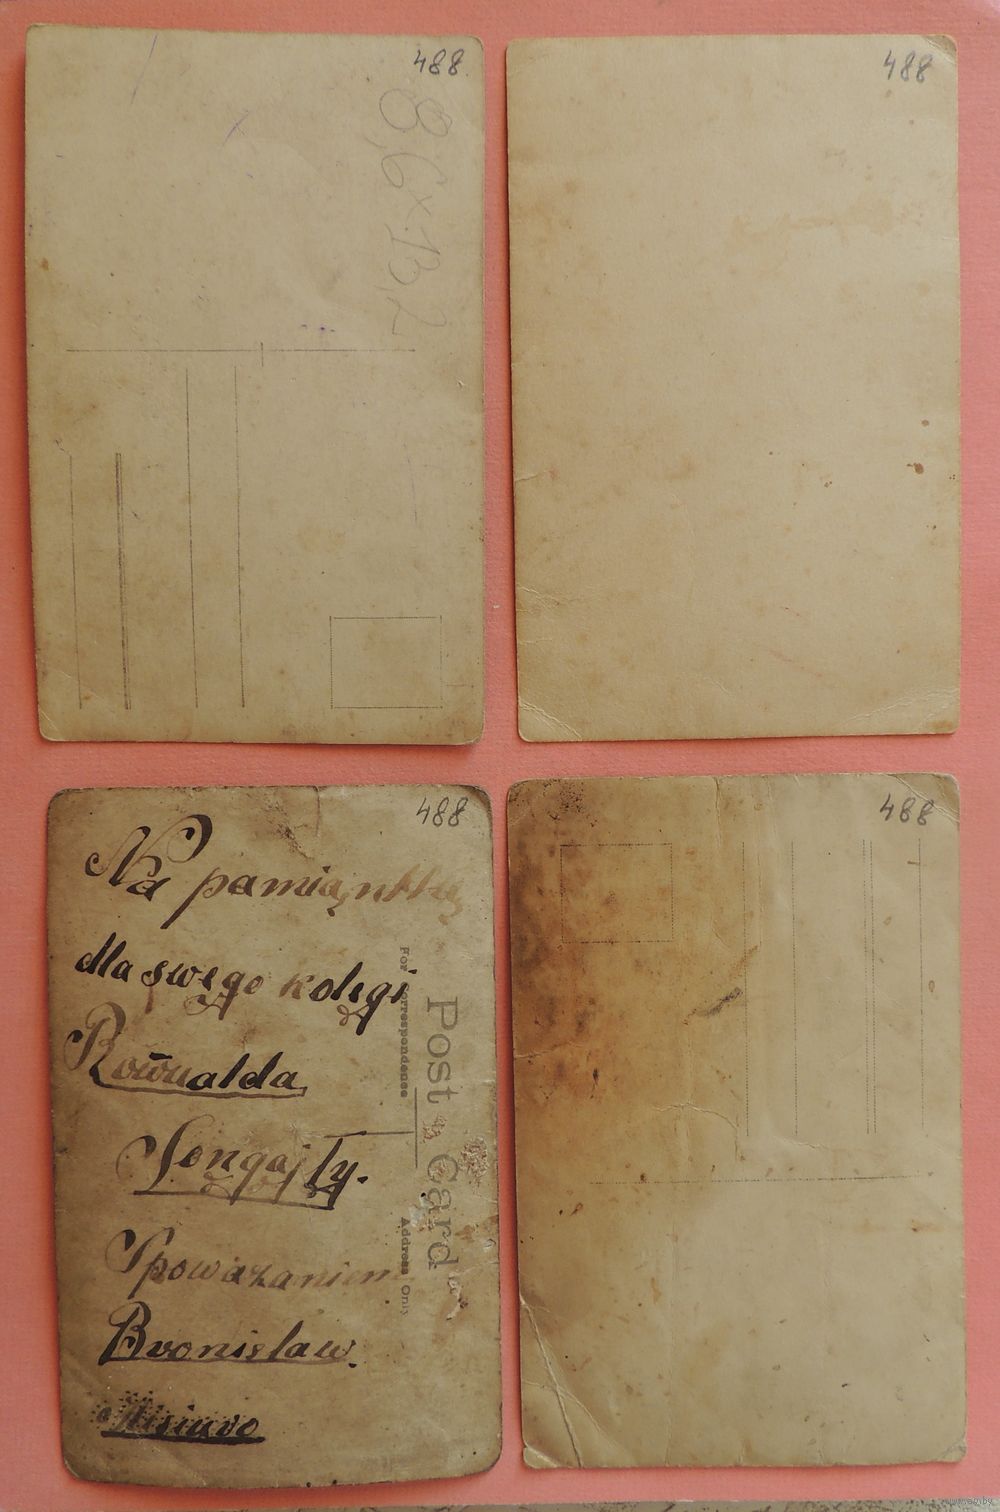 488
8,6×13,2
488
488
Na pamiąntkę
dla swego kolegi
Romualda
Songajły.
Spoważaniem
Bronisław.
Post Card
For Correspondence
Address Only
488